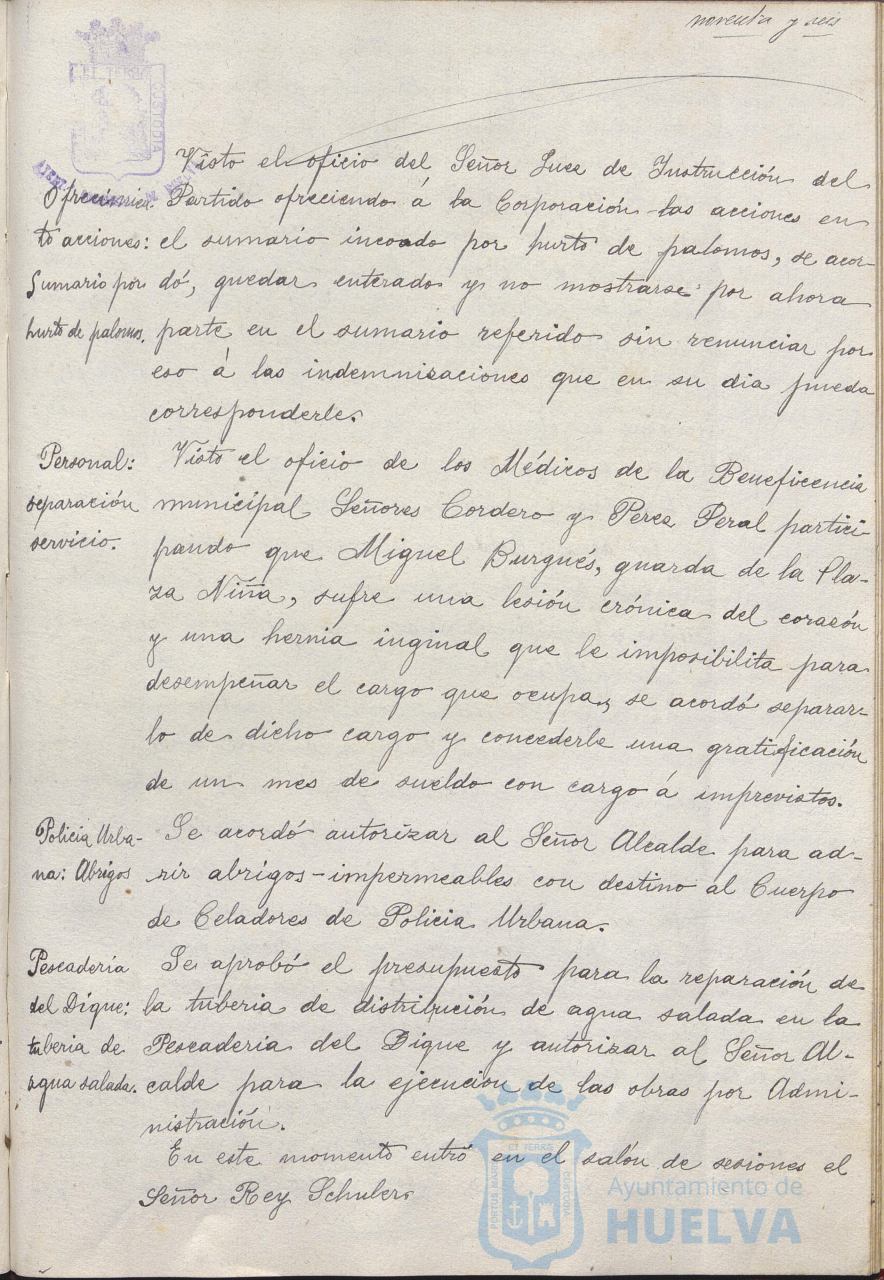 noventa y seis
ET TERRÆ
CUSTODIA
Visto el oficio del Señor Juez de Instrucción del
Ofrecimien- Partido ofreciendo á la Corporación las acciones en
to acciones: el sumario incoado por hurto de palomos, se acor-
Sumario por dó, quedar enterado y no mostrarse por ahora
hurto de palomos. parte en el sumario referido sin renunciar por
eso á las indemnizaciones que en su dia pueda
corresponderle.
Personal: Visto el oficio de los Médicos de la Beneficencia
separación municipal Señores Cordero y Perez Peral partici-
servicio. pando que Miguel Burgués, guarda de la Pla-
za Niña, sufre una lesión crónica del corazón
y una hernia inginal que le imposibilita para
desempeñar el cargo que ocupa, se acordó separar-
lo de dicho cargo y concederle una gratificación
de un mes de sueldo con cargo á imprevistos.
Policia Urba- Se acordó autorizar al Señor Alcalde para ad-
na: Abrigos rir abrigos-impermeables con destino al Cuerpo
de Celadores de Policia Urbana.
Pescaderia Se aprobó el presupuesto para la reparación de
del Dique: la tuberia de distribución de agua salada en la
tuberia de Pescaderia del Dique y autorizar al Señor Al-
agua salada. calde para la ejecución de las obras por Admi-
nistración.
En este momento entró en el salón de sesiones el
Señor Rey Schuler.
PORTUS MARIS ET TERRÆ CUSTODIA
Ayuntamiento de
HUELVA